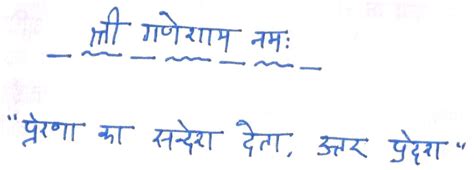 श्री गणेशाय नमः
"प्रेरणा का सन्देश देता, उत्तर प्रदेश"